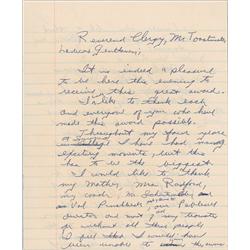 Reverend Clergy, Mr Toastmaster,
Ladies, Gentlemen,
It is indeed a pleasure
to be here this evening to
receive this great award.
I'd like to thank each
and everyone of you who has
made this award possible.
Throughout my four years
at Syracuse I have had many
exciting moments, but this
has to be the biggest.
I would like to thank
my Mother, Mrs Radford,
my coach, Mr
and Val Pinchbeck, Publicity
director and most of my teammates
for without all these people
I feel that I would have
been unable to the same